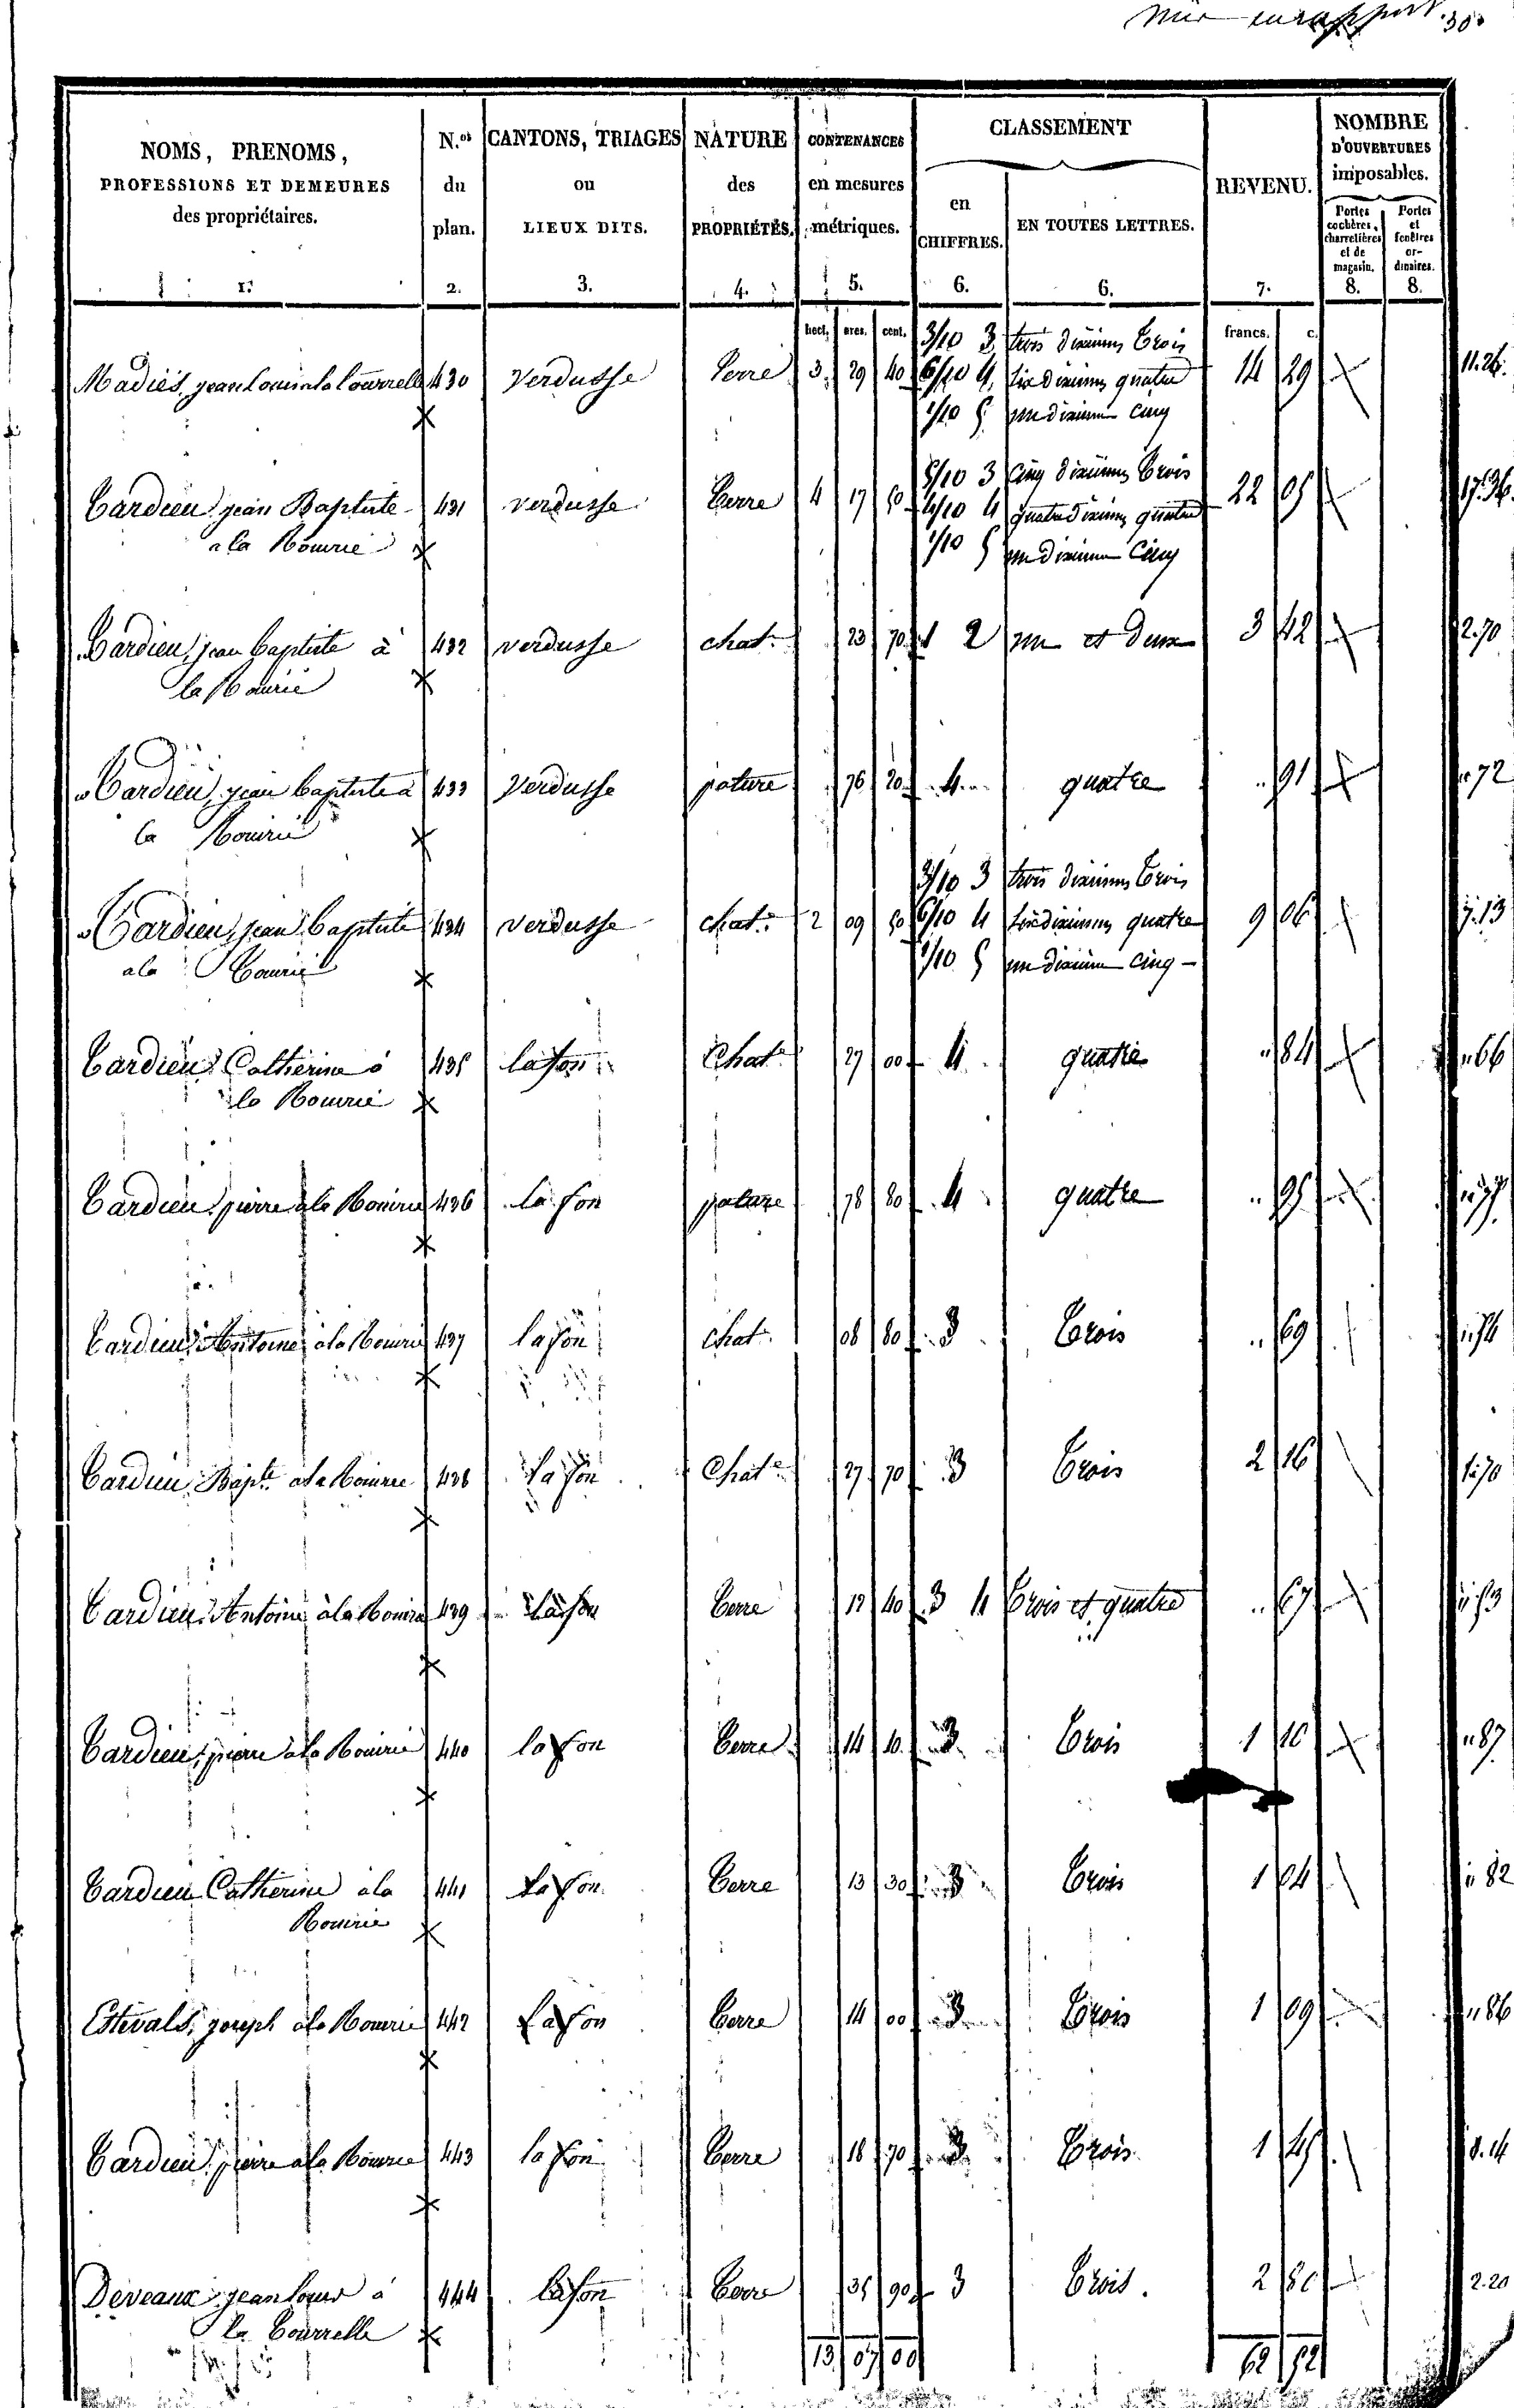 30.
NOMS, PRENOMS, PROFESSIONS ET DEMEURES des propriétaires. 1.
N.os du plan. 2.
CANTONS, TRIAGES ou LIEUX DITS. 3.
NATURE des PROPRIÉTÉS. 4.
CONTENANCES en mesures métriques. 5.
CLASSEMENT
en CHIFFRES. 6.
EN TOUTES LETTRES. 6.
REVENU. 7.
NOMBRE D'OUVERTURES imposables.
Portes cochères, charretières et de magasin. 8.
Portes et fenêtres ordinaires. 8.
hect. ares. cent. 3/10 3 trois dixiemes Trois francs. c.
Madiés, jean Louis 430 Verdusse Terre 3 29 40 6/10 4 six dixiemes quatre 14 29 11.26
1/10 5 un dixieme Cinq
5/10 3 Cinq dixiemes Trois
Tardieu jean Baptiste 431 Verdusse Terre 4 17 50 4/10 4 quatre dixiemes quatre 22 05 17.36
a la Rouirie 1/10 5 un dixieme Cinq
Tardieu, jean baptiste à 432 verdusse chat. 23 70 1 2 un et deux 3 42 2.70
la Rouirie
Tardieu, jean baptiste a 433 Verdusse pature 76 20 4 quatre 91 72
la Rouirie
3/10 3 trois dixiemes Trois
Tardieu, jean baptiste 434 Verdusse chat. 2 09 50 6/10 4 six dixiemes quatre 9 06 7.13
a la Rouirie 1/10 5 un dixieme cinq
Tardieu Catherine à 435 lafon Chat 27 00 4 quatre 84 66
la Rouirie
Tardieu pierre a la Rouirie 436 la fon pature 78 80 4 quatre 95
Tardieu Antoine à la Rouirie 437 lafon Chat. 08 80 3 Trois 69 54
Tardieu Bapte a la Rouirie 438 lafon Chate 27 70 3 Trois 2 16 1.70
Tardieu Antoine à la Rouirie 439 lafon Terre 12 40 3 4 Trois et quatre 67 53
Tardieu, pierre a la Rouirie 440 lafon Terre 14 10 3 Trois 1 10 87
Tardieu Catherine a la 441 Lafon Terre 13 30 3 Trois 1 04 82
Rouirie
Estévals, joseph a la Rouirie 442 Lafon Terre 14 00 3 Trois 1 09 86
Tardieu pierre a la Rouirie 443 lafon Terre 18 70 3 Trois 1 45 1.14
Deveaux jean Louis à 444 lafon Terre 35 90 3 Trois. 2 80 2.20
la Tourrelle
13 07 00 62 52